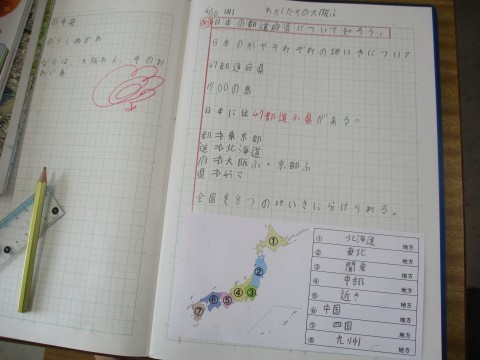 の中央
なりは、大阪わん、その
6/20 (月) わたしたちの大阪ふ
日本の都道府県について知ろう。
日本の形やそれぞれの地いきについて
47都道府県
日本には47都道ふ県がある。
都⇒東京都
道⇒北海道
府⇒大阪ふ・京都ふ
県⇒
全国を8つの地いきに分けられる。
① 北海道 地方
② 東北 地方
③ 関東 地方
④ 中部 地方
⑤ 近き 地方
⑥ 中国 地方
⑦ 四国 地方
⑧ 九州 地方
①
②
④ ③
⑥ ⑤
⑦